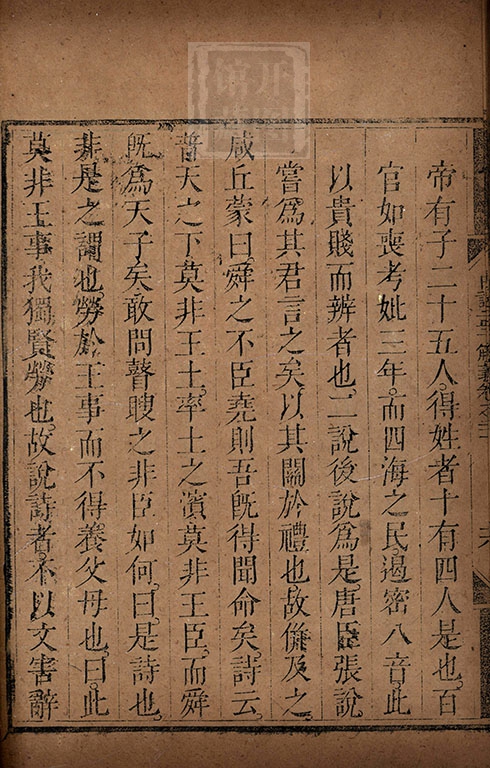 帝有子二十五人得姓者十有四人是也百
官如喪考妣三年而四海之民遏密八音此
以貴賤而辨者也二說後說為是唐臣張說
嘗為其君言之矣以其關於禮也故備及之
咸丘蒙曰舜之不臣堯則吾既得聞命矣詩云
普天之下莫非王土率土之濱莫非王臣而舜
既為天子矣敢問瞽瞍之非臣如何曰是詩也
非是之謂也勞於王事而不得養父母也曰此
莫非王事我獨賢勞也故說詩者不以文害辭